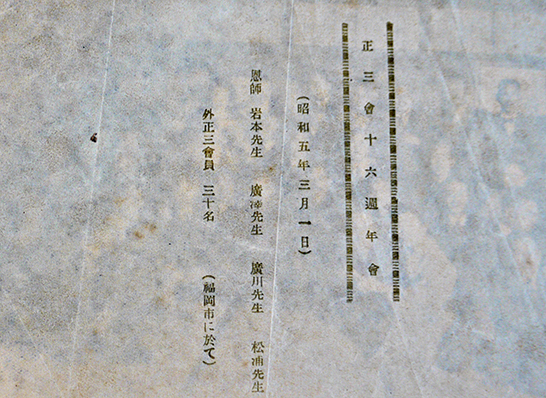 正三會十六週年會
(昭和五年三月一日)
恩師 岩本先生 廣津先生 廣川先生 松浦先生
外正三會員 三十名 (福岡市に於て)